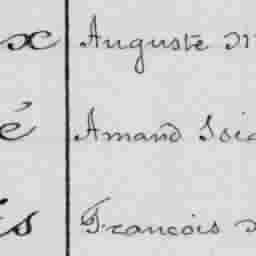 x Auguste M
é Amand Isid
is François